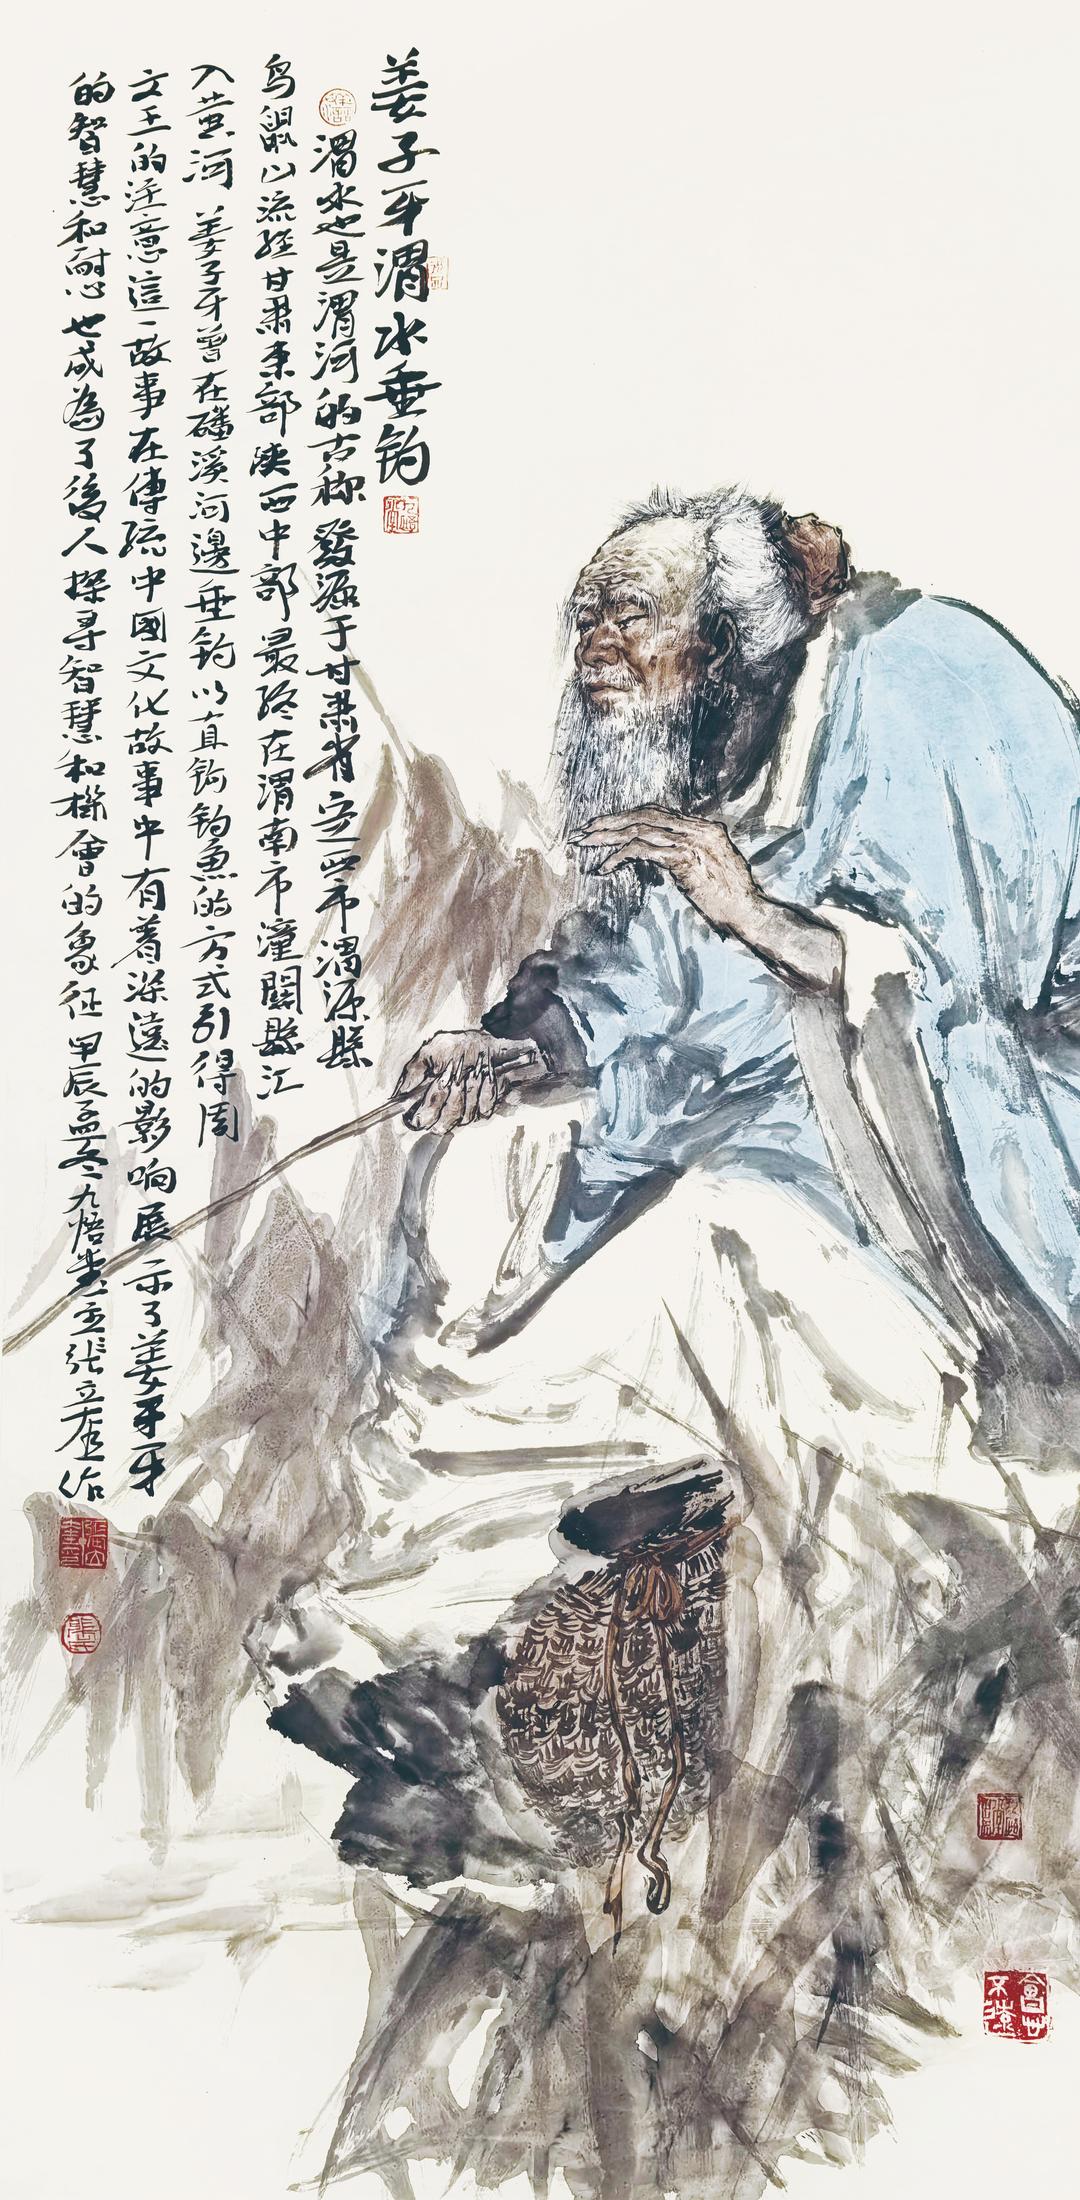 姜子牙渭水垂钓
渭水也是渭河的古称發源于甘肃省定西市渭源縣
鸟鼠山流经甘肃東部陕西中部最终在渭南市潼關縣汇
入黄河 姜子牙曾在磻溪河邊垂钓以直钩钓魚的方式引得周
文王的注意這一故事在傳统中國文化故事中有着深遠的影响展示了姜子牙
的智慧和耐心也成為了後人探寻智慧和機會的象征 甲辰孟冬九悟堂主張立奎作